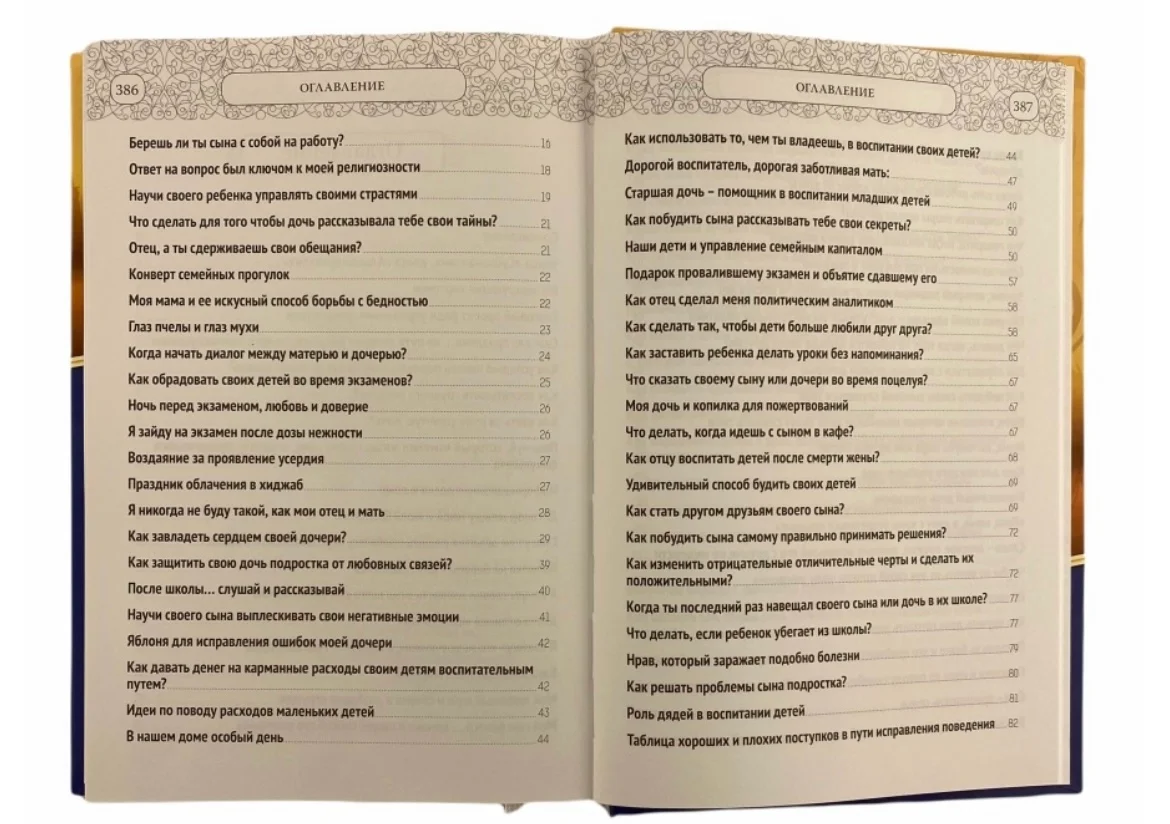 386
ОГЛАВЛЕНИЕ
Берешь ли ты сына с собой на работу? 16
Ответ на вопрос был ключом к моей религиозности 18
Научи своего ребенка управлять своими страстями 19
Что сделать для того чтобы дочь рассказывала тебе свои тайны? 21
Отец, а ты сдерживаешь свои обещания? 21
Конверт семейных прогулок 22
Моя мама и ее искусный способ борьбы с бедностью 22
Глаз пчелы и глаз мухи 23
Когда начать диалог между матерью и дочерью? 24
Как обрадовать своих детей во время экзаменов? 25
Ночь перед экзаменом, любовь и доверие 26
Я зайду на экзамен после дозы нежности 26
Воздаяние за проявление усердия 27
Праздник облачения в хиджаб 27
Я никогда не буду такой, как мои отец и мать 28
Как завладеть сердцем своей дочери? 29
Как защитить свою дочь подростка от любовных связей? 39
После школы... слушай и рассказывай 40
Научи своего сына выплескивать свои негативные эмоции 41
Яблоня для исправления ошибок моей дочери 42
Как давать денег на карманные расходы своим детям воспитательным
путем? 42
Идеи по поводу расходов маленьких детей 43
В нашем доме особый день 44
ОГЛАВЛЕНИЕ
387
Как использовать то, чем ты владеешь, в воспитании своих детей? 44
Дорогой воспитатель, дорогая заботливая мать: 47
Старшая дочь – помощник в воспитании младших детей 49
Как побудить сына рассказывать тебе свои секреты? 50
Наши дети и управление семейным капиталом 50
Подарок провалившему экзамен и объятие сдавшему его 57
Как отец сделал меня политическим аналитиком 58
Как сделать так, чтобы дети больше любили друг друга? 58
Как заставить ребенка делать уроки без напоминания? 65
Что сказать своему сыну или дочери во время поцелуя? 67
Моя дочь и копилка для пожертвований 67
Что делать, когда идешь с сыном в кафе? 67
Как отцу воспитать детей после смерти жены? 68
Удивительный способ будить своих детей 69
Как стать другом друзьям своего сына? 69
Как побудить сына самому правильно принимать решения? 72
Как изменить отрицательные отличительные черты и сделать их
положительными? 72
Когда ты последний раз навещал своего сына или дочь в их школе? 77
Что делать, если ребенок убегает из школы? 77
Нрав, который заражает подобно болезни 79
Как решать проблемы сына подростка? 80
Роль дядей в воспитании детей 81
Таблица хороших и плохих поступков в пути исправления поведения 82